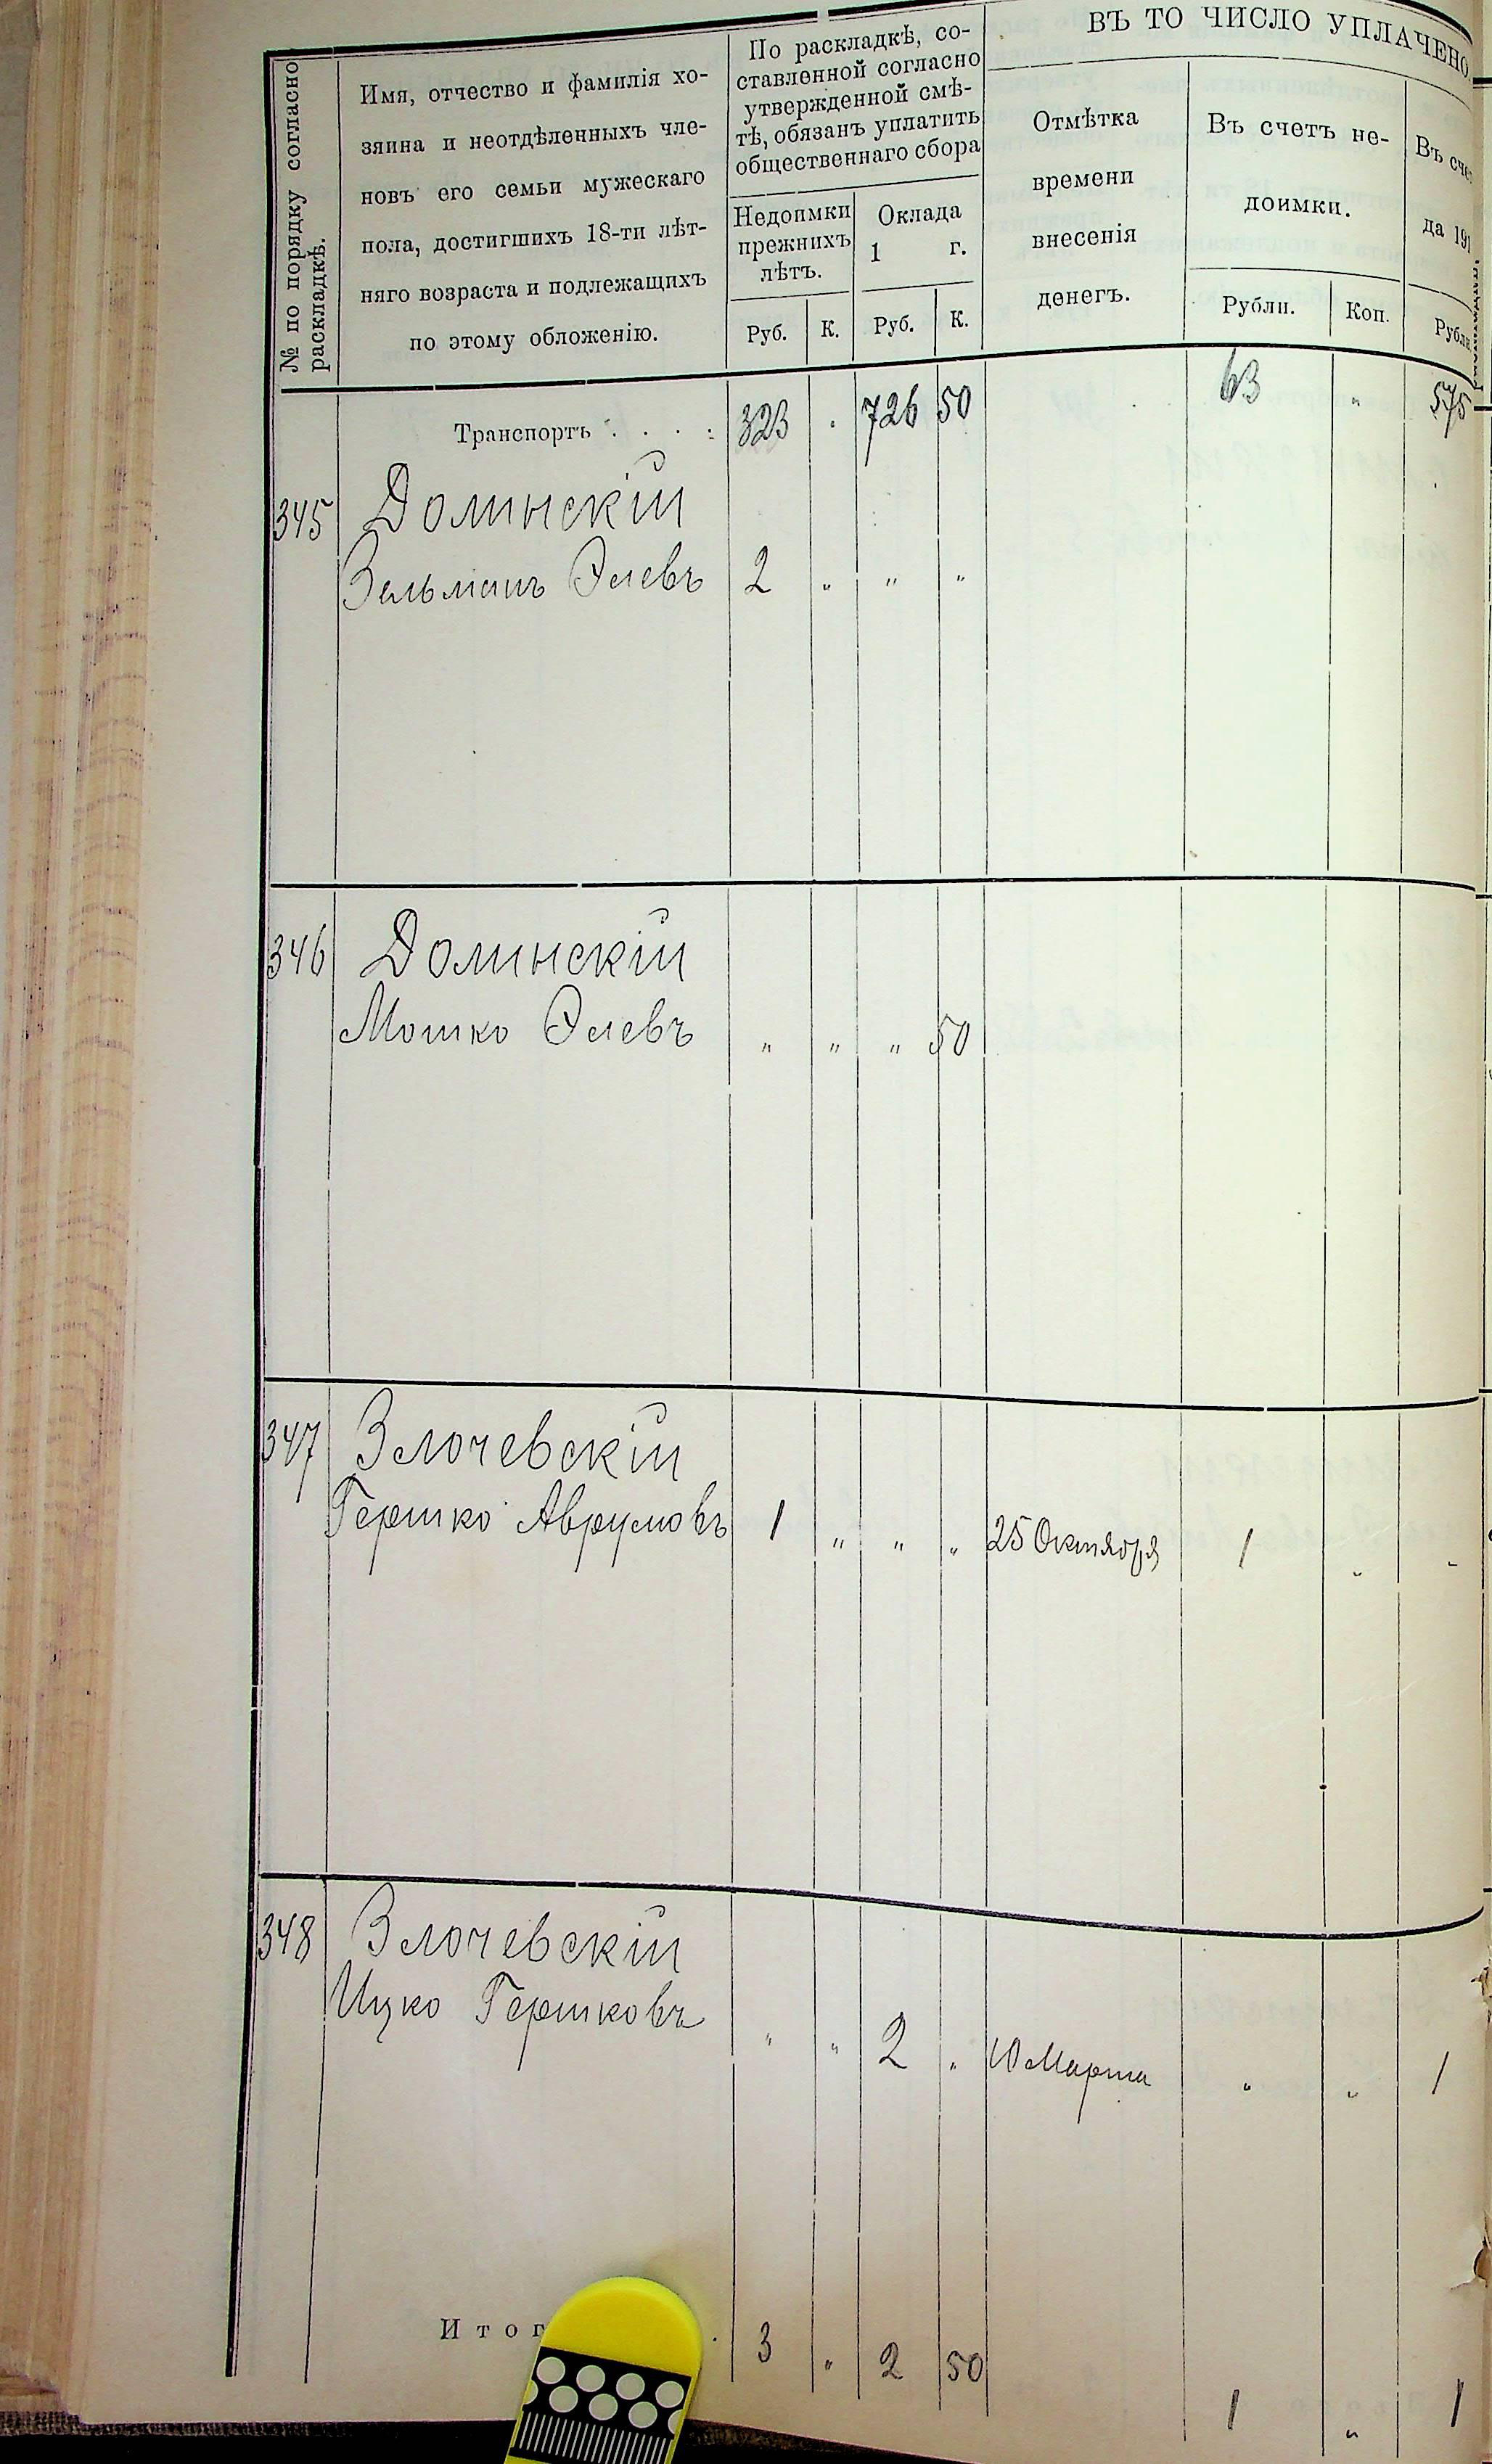 № по порядку согласно
раскладкѣ.
Имя, отчество и фамилія хо-
зяина и неотдѣленныхъ чле-
новъ его семьи мужескаго
пола, достигшихъ 18-ти лѣт-
няго возраста и подлежащихъ
по этому обложенію.
По раскладкѣ, со-
ставленной согласно
утвержденной смѣ-
тѣ, обязанъ уплатить
общественнаго сбора
Недоимки
прежнихъ
лѣтъ.
Оклада
1 г.
Руб. К. Руб. К.
ВЪ ТО ЧИСЛО УПЛАЧЕНО
Отмѣтка
времени
внесенія
денегъ.
Въ счетъ не-
доимки.
Рубли. Коп.
Въ счет
да 191
Рубли
Транспортъ . . . . 323 . 726 50 63 „ 575
345 Долинскій
Зельманъ Элевъ 2 „ „ „
346 Долинскій
Мошко Элевъ „ „ „ 50
347 Злочевскій
Гершко Аврумовъ 1 „ „ „ 25 Октября 1 „ „
348 Злочевскій
Ицко Гершковъ „ „ 2 „ 10 Марта „ „ 1
Итог 3 „ 2 50 1 „ 1